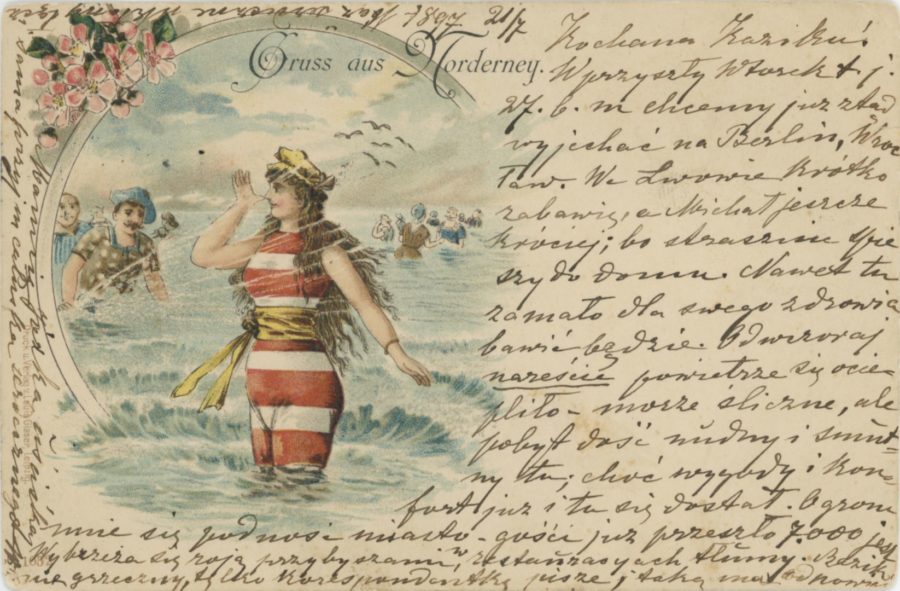 Gruss aus Norderney.
1897 21/7
Kochana Kaziku!
W przyszły Wtorek t. j.
27. b. m chcemy już ztąd
wyjechać na Berlin, Wroc
ław. We Lwowie krótko
zabawię, a Michał jeszcze
króciej; bo strasznie spie
szy do domu. Nawet tu
zamało dla swego zdrowia
bawić będzie. Od wczoraj
nareście powietrze się ocie
pliło – morze śliczne, ale
pobyt dość nudny i smut
ny tu; choć wygody i kom
fort już i tu się dostał. Ogrom
mnie się podnosi miasto – gości już przeszło 7.000 jest
Wybrzeża się roją przybyszami, w restauracyach tłumy.
nie grzeczny, tylko korespondentką pisze i taką ma